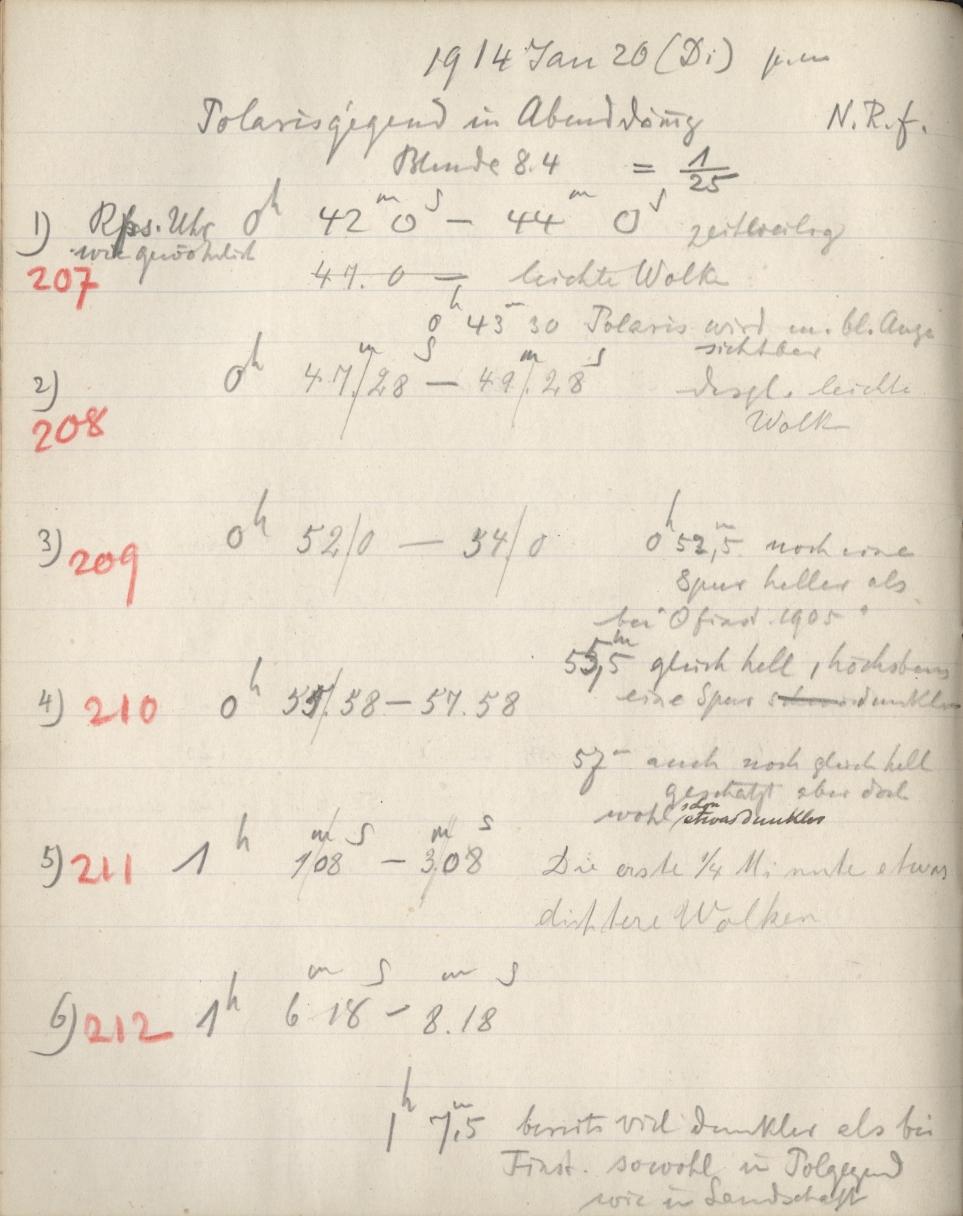 1914 Jan 20 (Di) p.m
Polarisgegend in Abenddämg N.R.f.
Blende 8.4 = 1/25
1) Rfs. Uhr 0h 42m 0s – 44m 0s zeitweilig
wie gewöhnlich
207 47. 0 — leichte Wolke
0h 43m 30 Polaris wird m. bl. Auge
sichtbar
2) 0h 47m/28s – 49m/28s desgl. leichte
208 Wolk
3) 209 0h 52/0 — 54/0 0h 52,5m noch eine
Spur heller als
bei Ofinst. 1905
55,5m gleich hell, höchstens
4) 210 0h 55/.58 – 57.58 eine Spur dunkler
57m auch noch gleich hell
geschätzt aber doch
wohl schon etwas dunkler
5) 211 1h 1m/08s – 3m/08s Die erste 1/4 Minute etwas
dichtere Wolken
6) 212 1h 6m 18s – 8m.18s
1h 7,5m bereits viel dunkler als bei
Finst. sowohl in Polgegend
wie in Landschaft